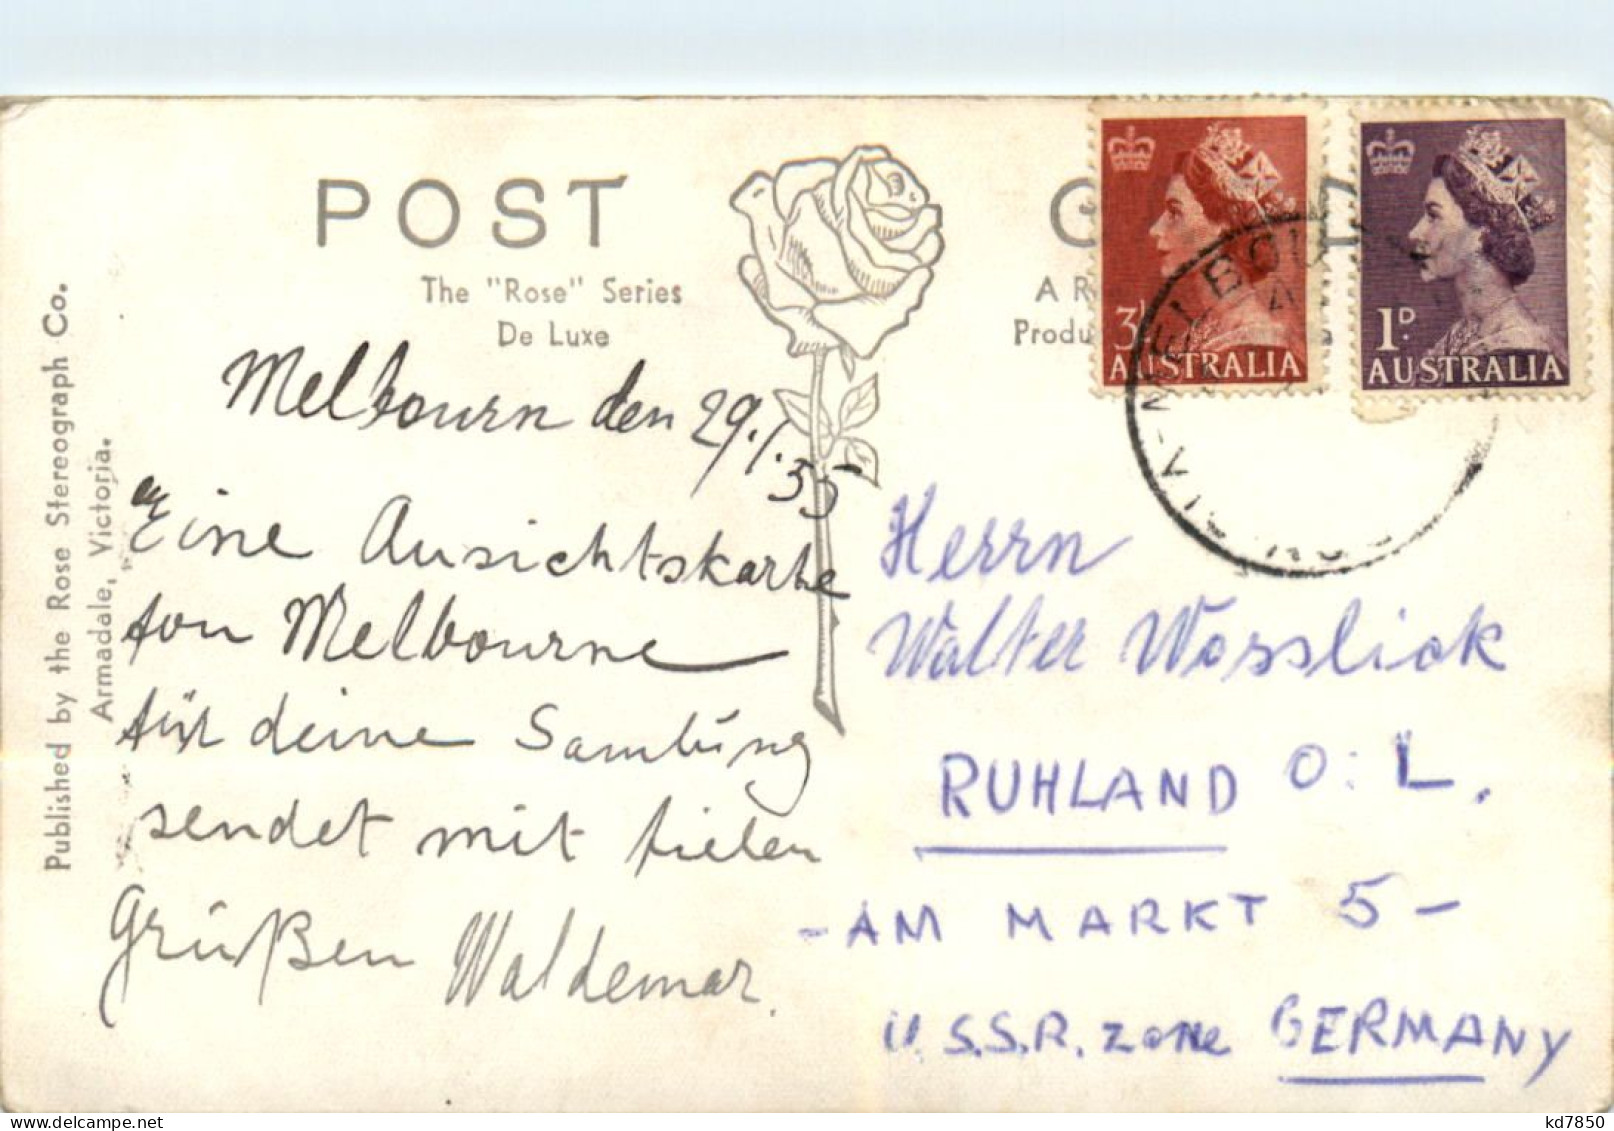 POST C
The "Rose" Series
De Luxe
A R
Produ
3½
AUSTRALIA
1D.
AUSTRALIA
MELBOU
Published by the Rose Stereograph Co.
Armadale, Victoria.
Melbourn den 29./.55
Eine Ansichtskarte
fon Melbourne
für deine Samlung
sendet mit fielen
Grüßen Waldemar.
Herrn
Walter Wosslick
RUHLAND O. L.
- AM MARKT 5 -
U.S.S.R. zone GERMANY
kd7850